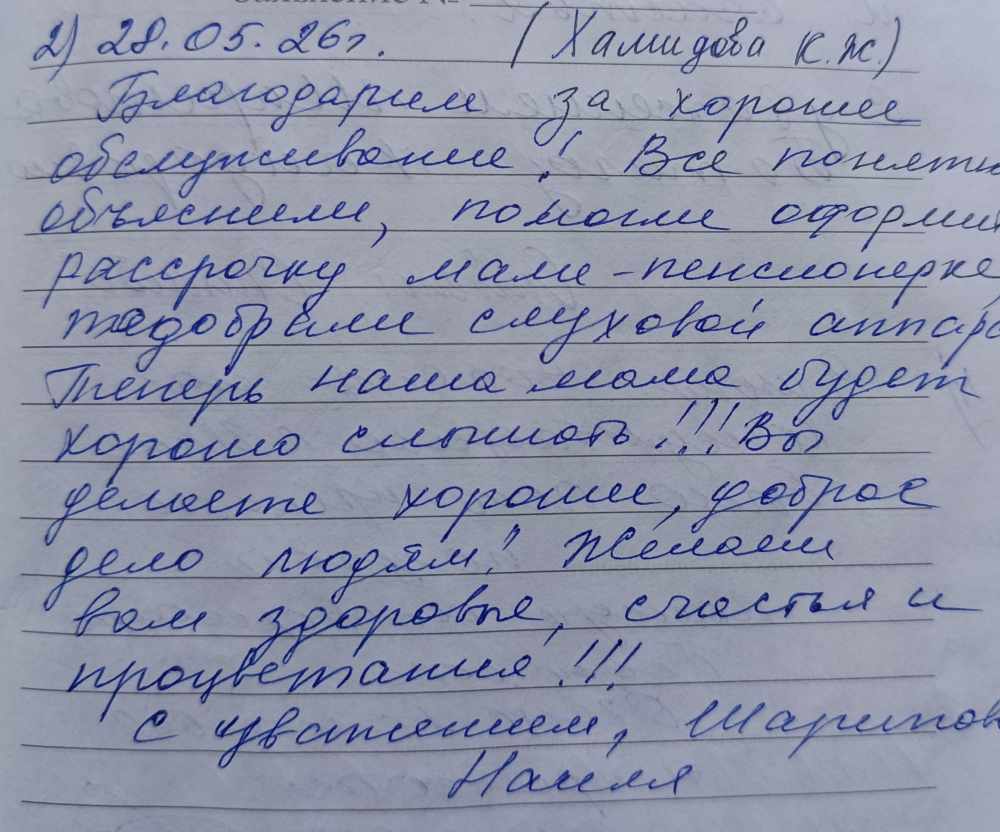 Заявление №
2) 28.05.26г. (Хамидова К.Ж.)
Благодарим за хорошее
обслуживание! Все понятн
объяснили, помогли оформи
рассрочку маме-пенсионерке
подобрали слуховой аппара
Теперь наша мама будет
хорошо слышать!!! Вы
делаете хорошее, доброе
дело людям! Желаем
вам здоровье, счастья и
процветания!!!
С уважением, Шарипов
Наиля